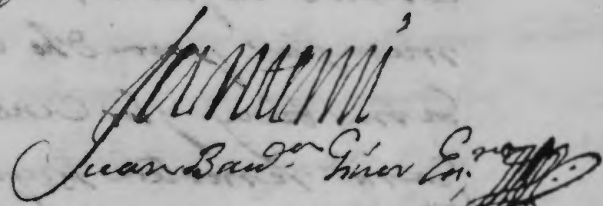 ante mi
Juan Bau.ta Giner Es.no